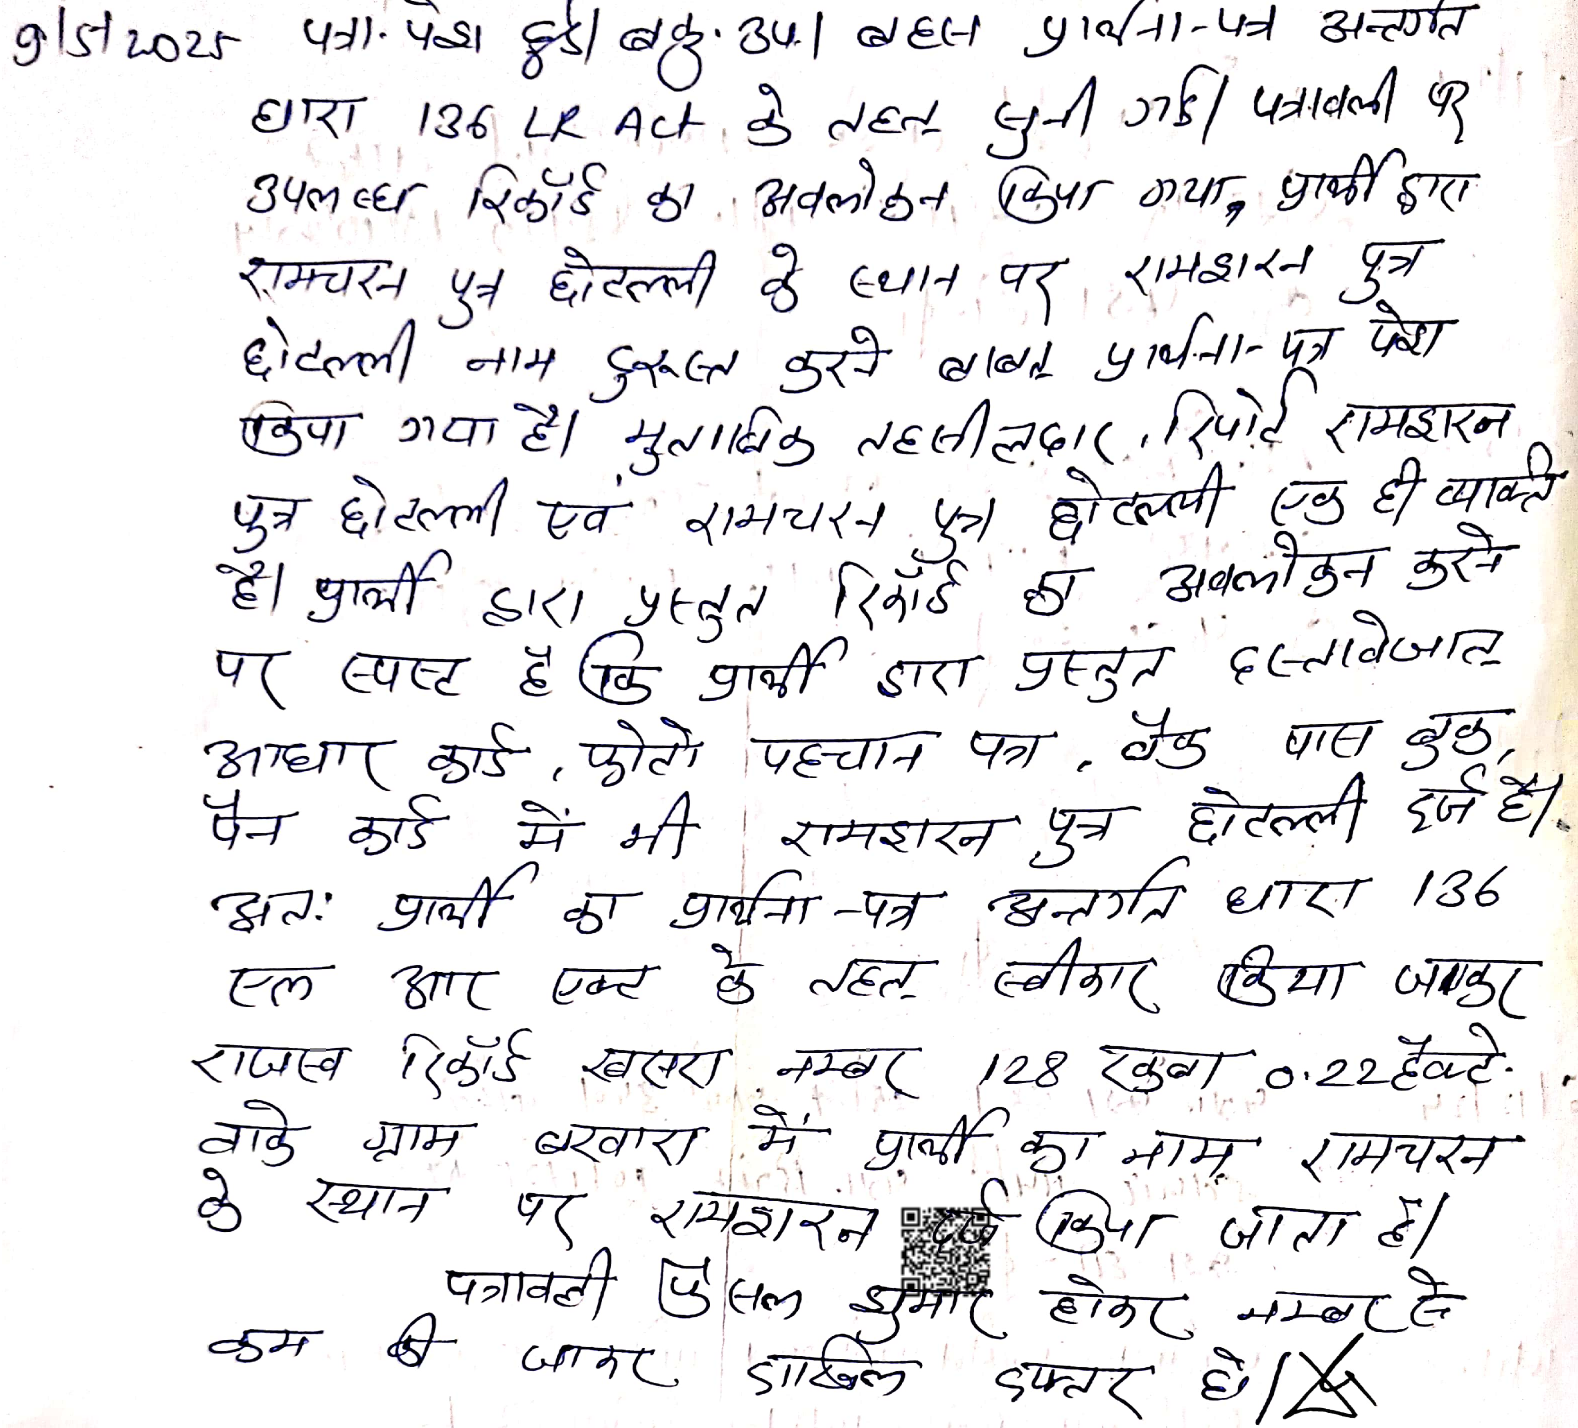 9/5/2025 पत्रा. पेश हुई। वकु. उप.। बहस प्रार्थना-पत्र अन्तर्गत
धारा 136 LR Act के तहत् सुनी गई। पत्रावली पर
उपलब्ध रिकॉर्ड का अवलोकन किया गया, प्रार्थी द्वारा
रामचरन पुत्र छोटल्ली के स्थान पर रामशरन पुत्र
छोटल्ली नाम दुरूस्त करने बाबत् प्रार्थना-पत्र पेश
किया गया है। मुताबिक तहसीलदार, रिपोर्ट रामशरन
पुत्र छोटल्ली एवं रामचरन पुत्र छोटल्ली एक ही व्यक्ति
है। प्रार्थी द्वारा प्रस्तुत रिकॉर्ड का अवलोकन करने
पर स्पस्ट है कि प्रार्थी द्वारा प्रस्तुत दस्तावेजात्
आधार कार्ड, फोटो पहचान पत्र, बैंक पास बुक,
पैन कार्ड में भी रामशरन पुत्र छोटल्ली दर्ज है।
अत: प्रार्थी का प्रार्थना-पत्र अन्तर्गत धारा 136
एल आर एक्ट के तहत् स्वीकार किया जाकर
राजस्व रिकॉर्ड खसरा नम्बर 128 रकुबा 0.22 हैक्टे.
वाके ग्राम बरवारा में प्रार्थी का नाम रामचरन
के स्थान पर रामशरन दर्ज किया जाता है।
पत्रावली फैसल शुमार होकर नम्बर से
कम की जाकर दाखिल दफ्तर हो।